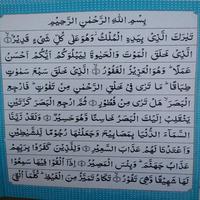 بِسْمِ اللهِ الرَّحْمٰنِ الرَّحِيْمِ
تَبٰرَكَ الَّذِيْ بِيَدِهِ الْمُلْكُ وَهُوَ عَلٰى كُلِّ شَيْءٍ قَدِيْرٌ ۝
الَّذِيْ خَلَقَ الْمَوْتَ وَالْحَيٰوةَ لِيَبْلُوَكُمْ اَيُّكُمْ اَحْسَنُ
عَمَلًا ۚ وَهُوَ الْعَزِيْزُ الْغَفُوْرُ ۝ الَّذِيْ خَلَقَ سَبْعَ سَمٰوٰتٍ
طِبَاقًا ۖ مَا تَرٰى فِيْ خَلْقِ الرَّحْمٰنِ مِنْ تَفٰوُتٍ ۚ فَارْجِعِ
الْبَصَرَ ۙ هَلْ تَرٰى مِنْ فُطُوْرٍ ۝ ثُمَّ ارْجِعِ الْبَصَرَ كَرَّتَيْنِ
يَنْقَلِبْ اِلَيْكَ الْبَصَرُ خَاسِئًا وَّهُوَ حَسِيْرٌ ۝ وَلَقَدْ زَيَّنَّا
السَّمَآءَ الدُّنْيَا بِمَصَابِيْحَ وَجَعَلْنٰهَا رُجُوْمًا لِّلشَّيٰطِيْنِ
وَاَعْتَدْنَا لَهُمْ عَذَابَ السَّعِيْرِ ۝ وَلِلَّذِيْنَ كَفَرُوْا بِرَبِّهِمْ
عَذَابُ جَهَنَّمَ ۚ وَبِئْسَ الْمَصِيْرُ ۝ اِذَآ اُلْقُوْا فِيْهَا سَمِعُوْا
لَهَا شَهِيْقًا وَّهِيَ تَفُوْرُ ۝ تَكَادُ تَمَيَّزُ مِنَ الْغَيْظِ ۚ كُلَّمَآ اُلْقِيَ